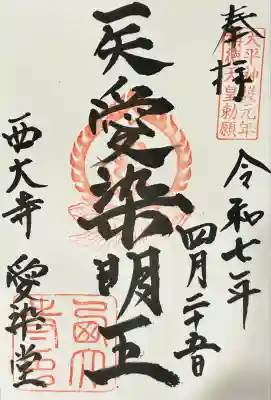 奉拝
天平神護元年
称徳天皇勅願
令和七年
四月二十五日
天愛染明王
西大寺 愛染堂